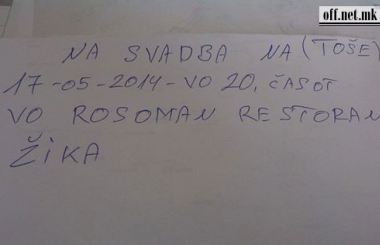 off.net.mk
NA SVADBA NA (TOŠE)
17-05-2014-VO 20. ČASOT
VO ROSOMAN RESTORAN
ŽIKA